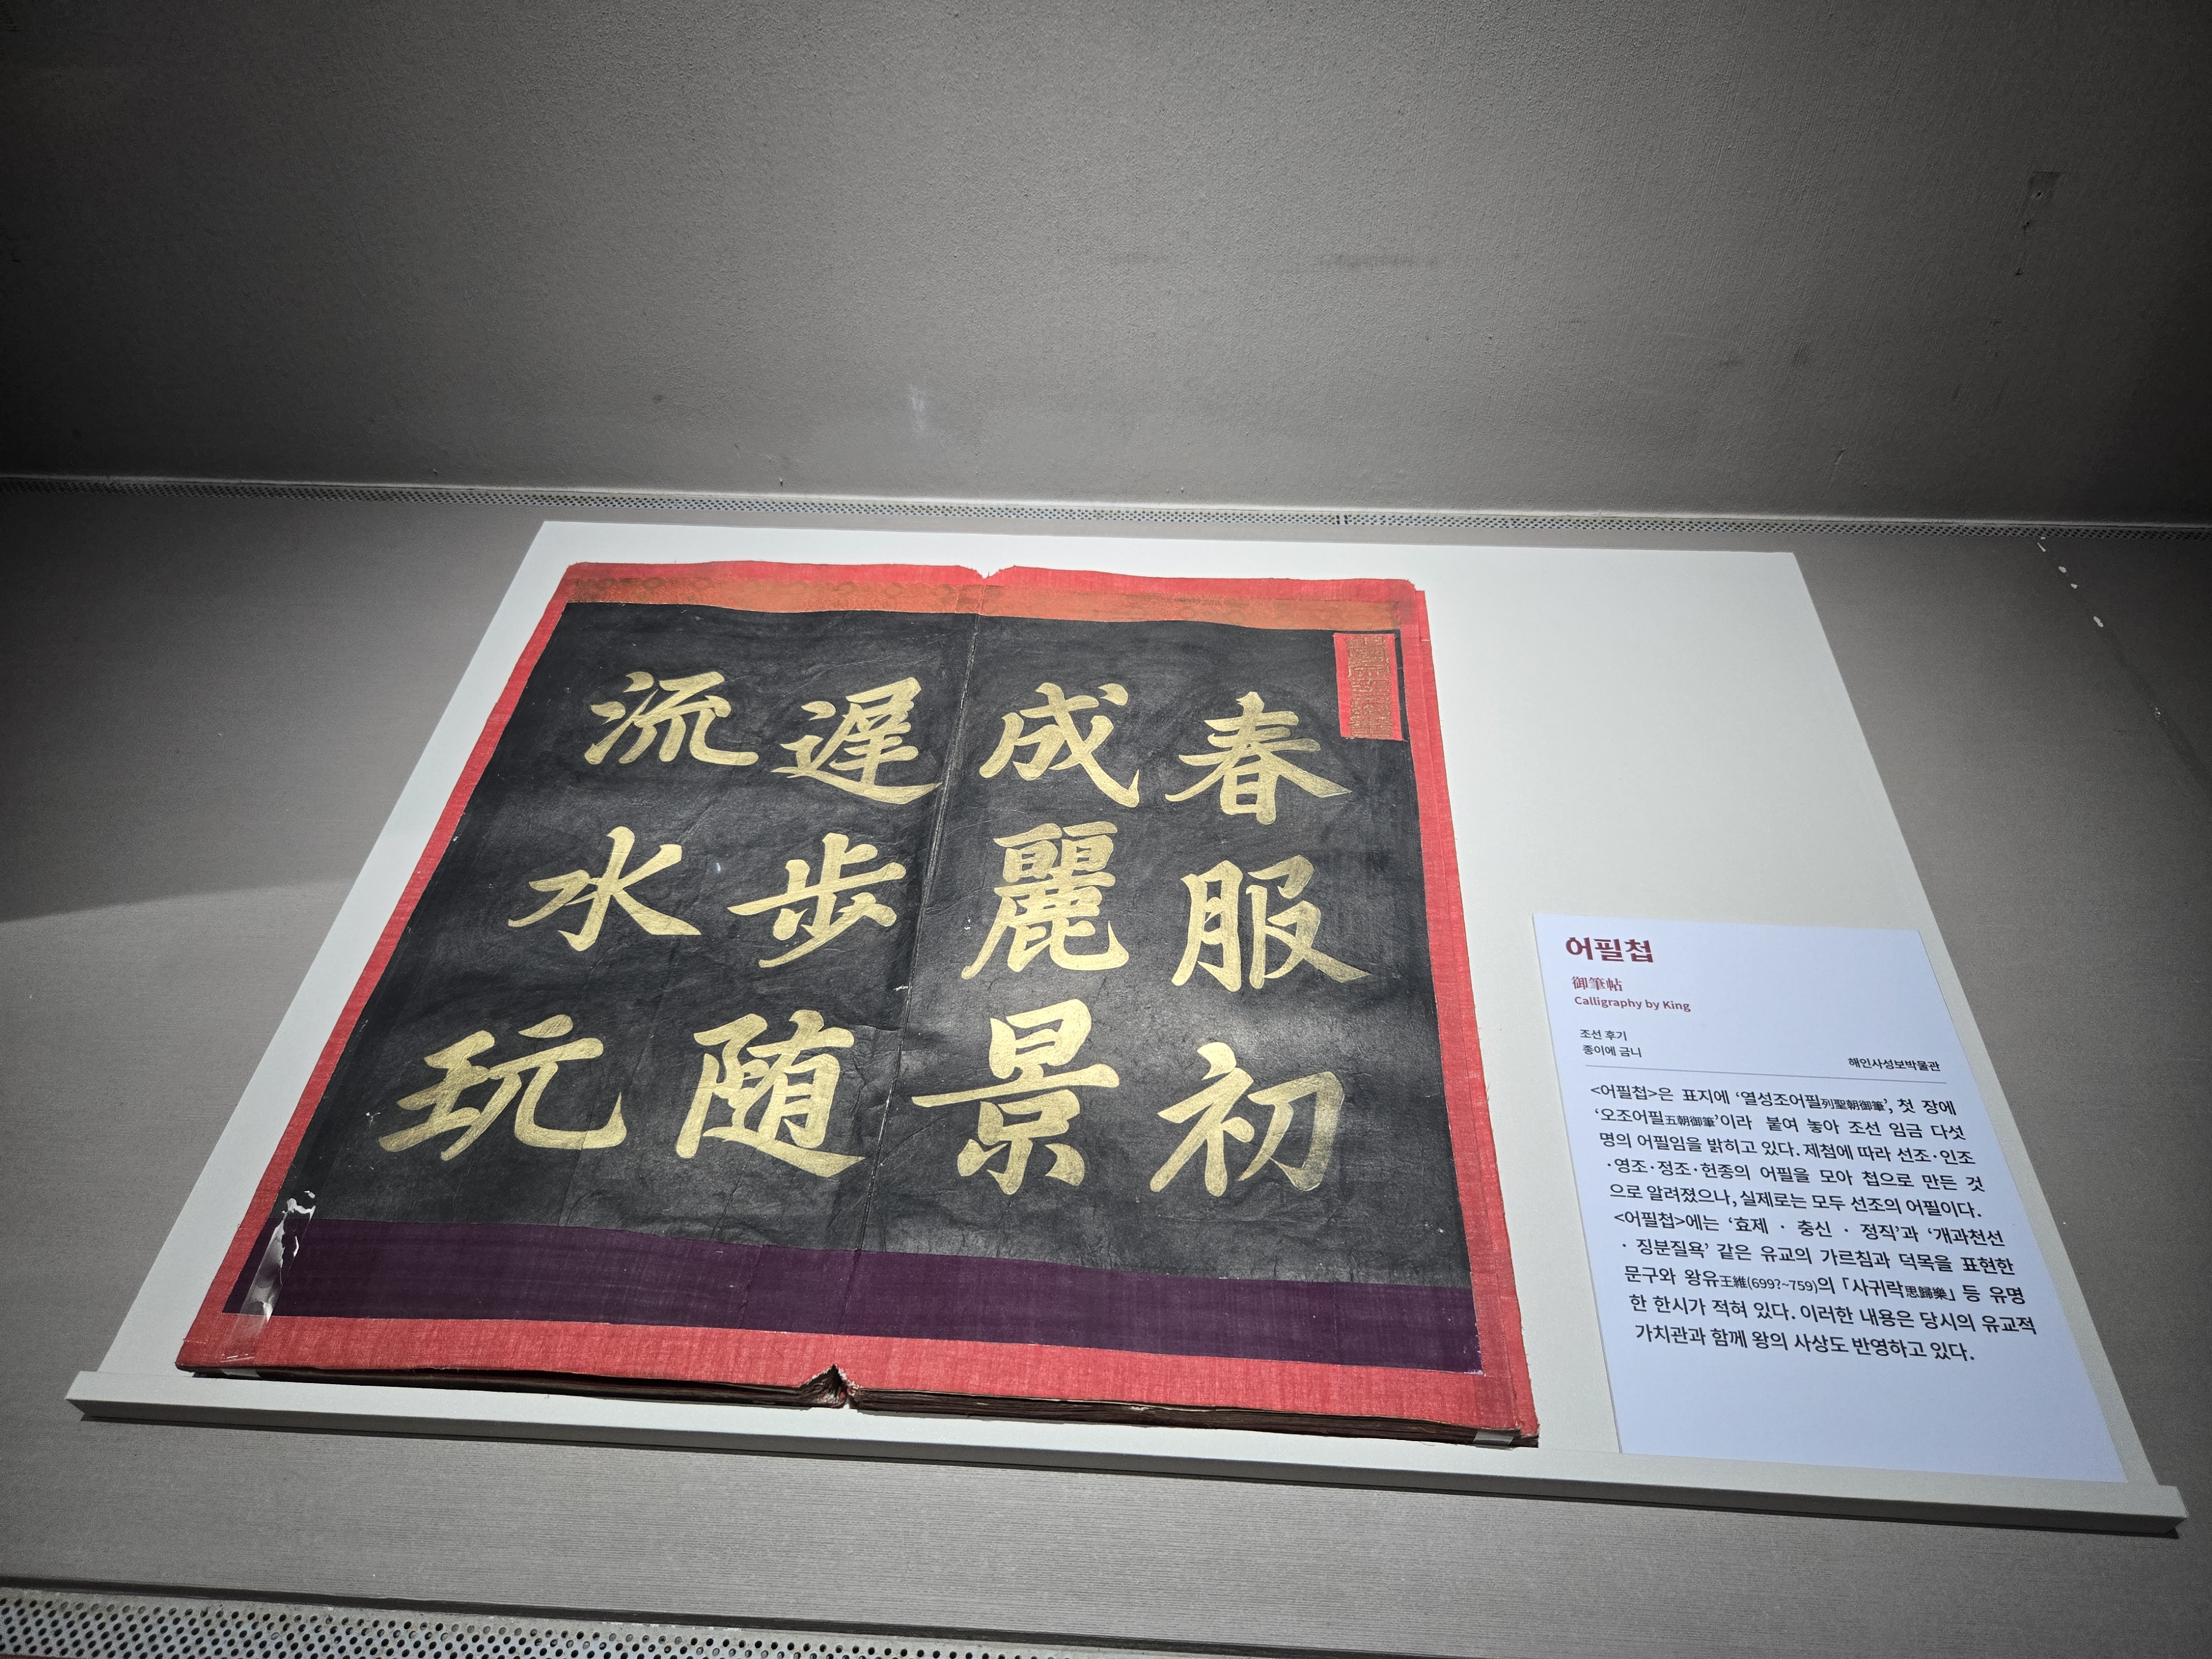 春服初
成麗景
遅步随
流水玩
어필첩
御筆帖
Calligraphy by King
조선 후기
종이에 금니
해인사성보박물관
<어필첩>은 표지에 ‘열성조어필列聖朝御筆’, 첫 장에
‘오조어필五朝御筆’이라 붙여 놓아 조선 임금 다섯
명의 어필임을 밝히고 있다. 제첨에 따라 선조·인조
·영조·정조·헌종의 어필을 모아 첩으로 만든 것
으로 알려졌으나, 실제로는 모두 선조의 어필이다.
<어필첩>에는 ‘효제 · 충신 · 정직’과 ‘개과천선
· 징분질욕’ 같은 유교의 가르침과 덕목을 표현한
문구와 왕유王維(699?~759)의 「사귀락思歸樂」 등 유명
한 한시가 적혀 있다. 이러한 내용은 당시의 유교적
가치관과 함께 왕의 사상도 반영하고 있다.